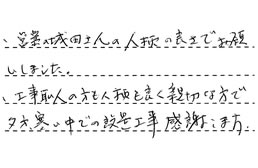 、営業の成田さんの人柄の良さでお願
いしました。
、工事職人の方も人柄も良く親切な方で
夕方寒い中での改善工事感謝します。